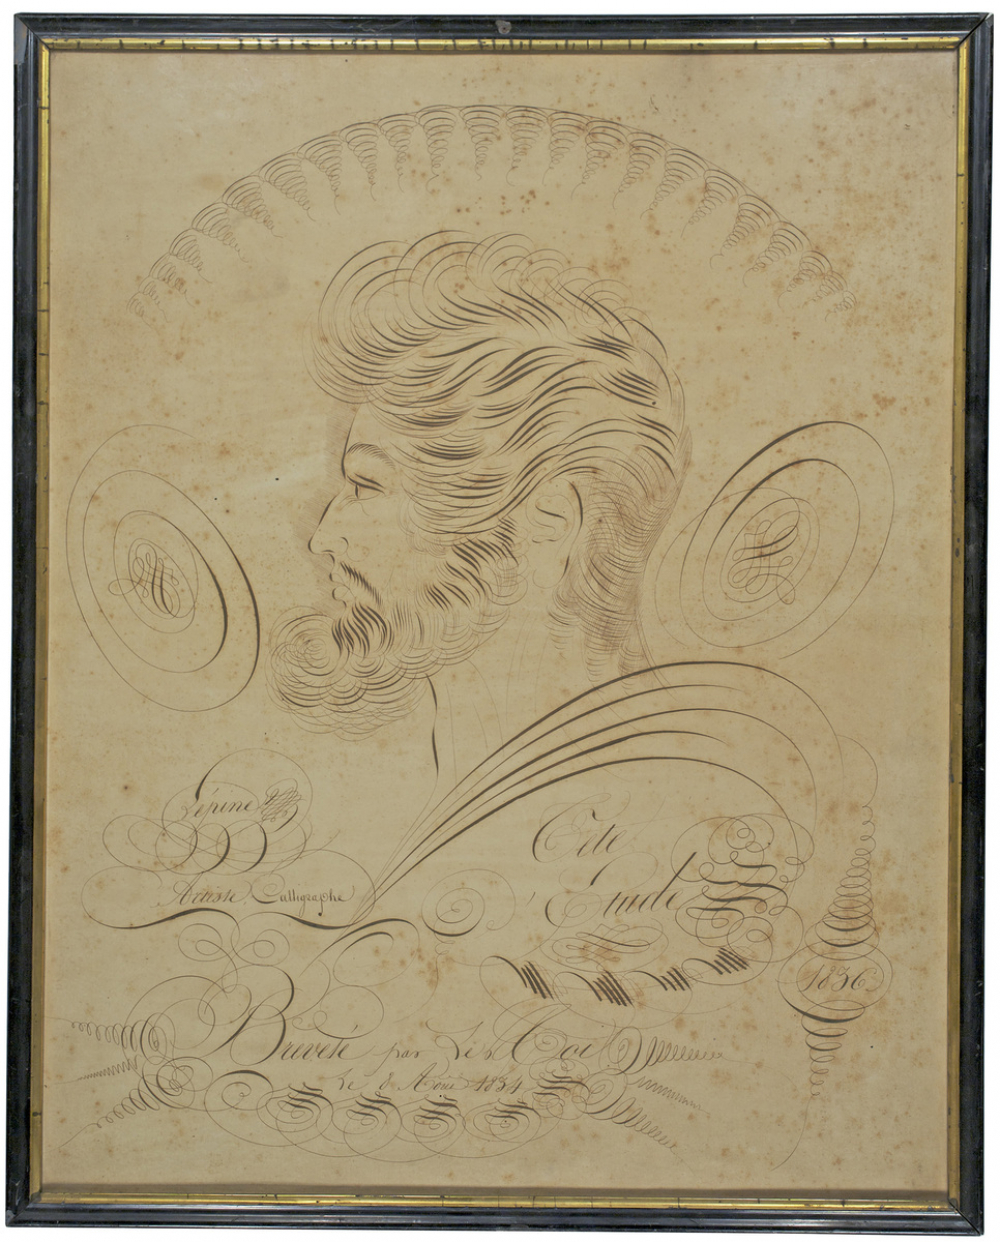 Lépine
Artiste Calligraphe
Tête
Etude
1836
Breveté par Le Roi
Le 8 Aoui 1834